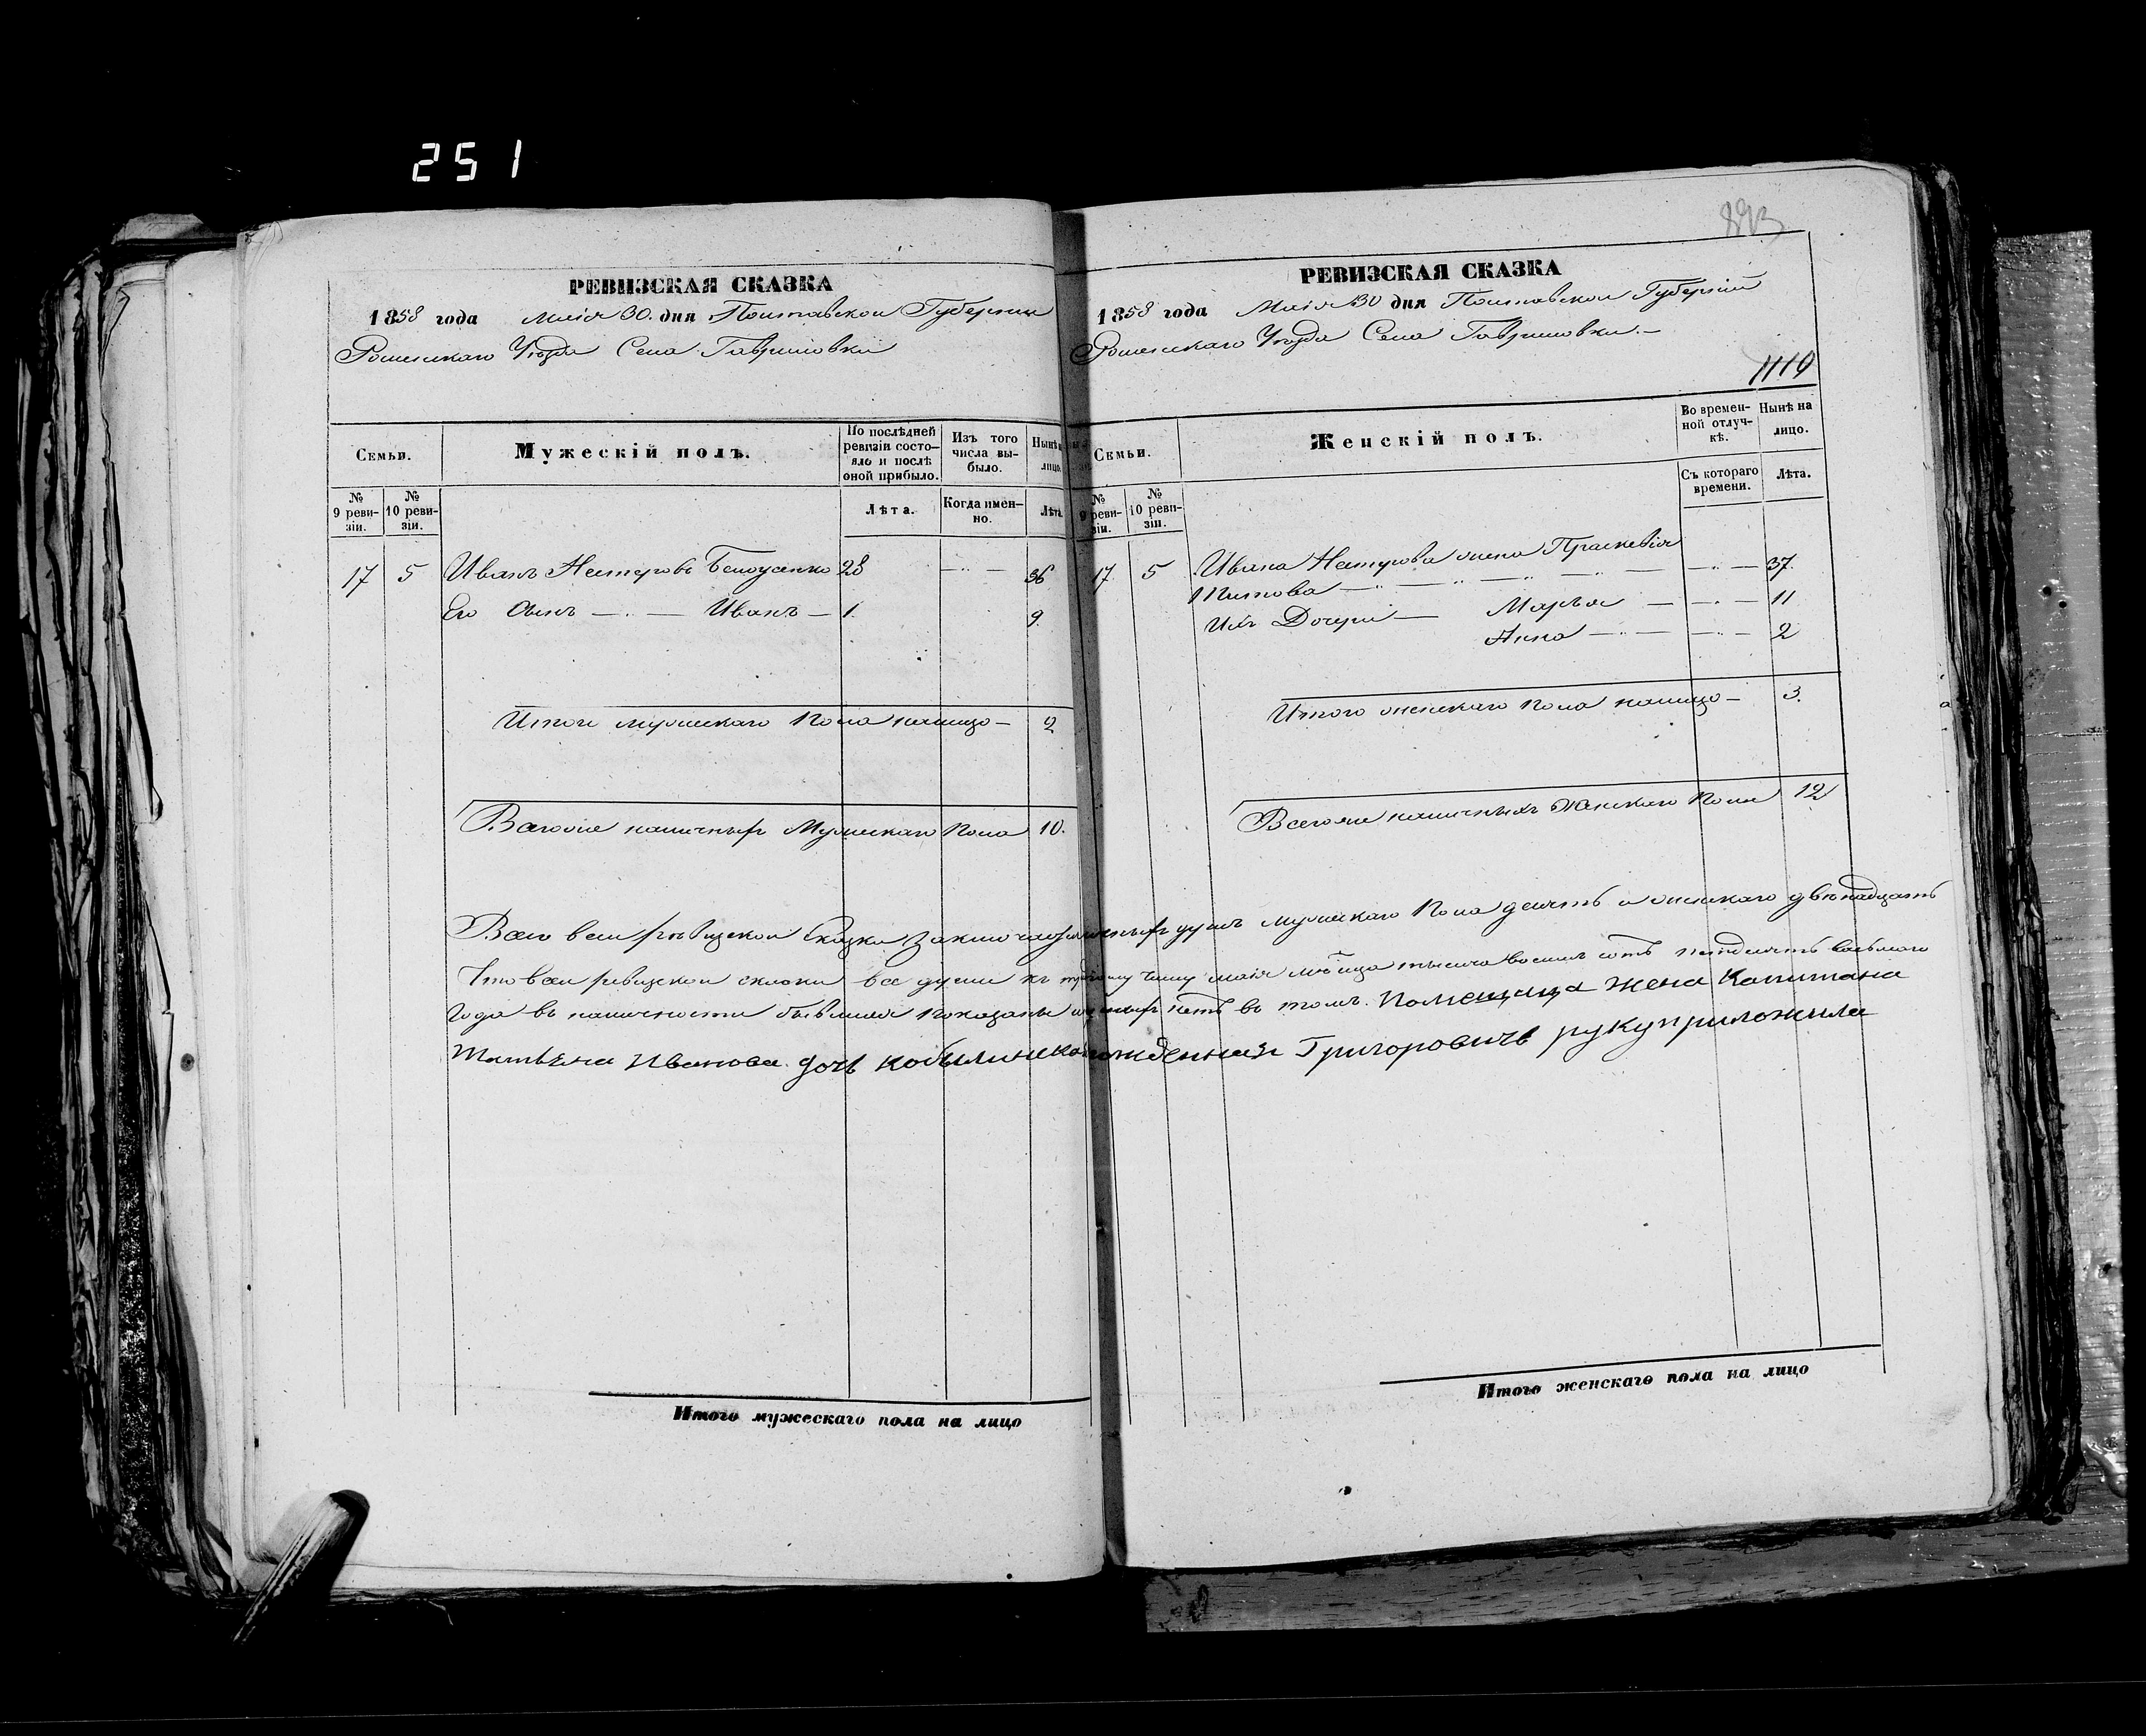 251
893
РЕВИЗСКАЯ СКАЗКА
1858 года Маія 30. дня Полтавской Губерніи
Роменскаго Уѣзда Села Гавришовки
Семьи.
Мужескій полъ.
По послѣдней ревизіи состояло и послѣ оной прибыло.
Изъ того числа выбыло.
Нынѣ лицо.
№ 9 ревизіи.
№ 10 ревизіи.
Лѣта.
Когда именно.
Лѣта.
17 5 Иванъ Нестеровъ Белоусенко 28 — 36
Его Сынъ — Иванъ — 1. 9.
Итого мужескаго пола налицо — 2
Всегоже наличныхъ Мужескаго пола 10.
РЕВИЗСКАЯ СКАЗКА
1858 года Маія 30 дня Полтавской Губерніи
Роменскаго Уѣзда Села Гавришовки. —
1119
Семьи.
Женскій полъ.
Во временной отлучкѣ.
Нынѣ на лицо.
№ 9 ревизіи.
№ 10 ревизіи.
Съ котораго времени.
Лѣта.
17 5 Ивана Нестерова жена Праскевія
Титова — — 37.
Ихъ Дочери — Марья — — 11
Анна — — 2
Итого женскаго пола налицо — 3.
Всегоже наличныхъ Женскаго пола 12
Всего в сей ревизской сказки заключаю душъ мужескаго пола десять и женскаго двѣнадцать
Что в сей ревизской сказки все души къ числу маія мѣсяца тысяча восемь сотъ пятдесятъ восьмаго
года въ наличности бывшія показаны нетъ въ томъ. Помещица жена Капитана
Татьяна Иванова дочь Кобылинская рожденная Григоровичь руку приложила
Итого мужескаго пола на лицо
Итого женскаго пола на лицо